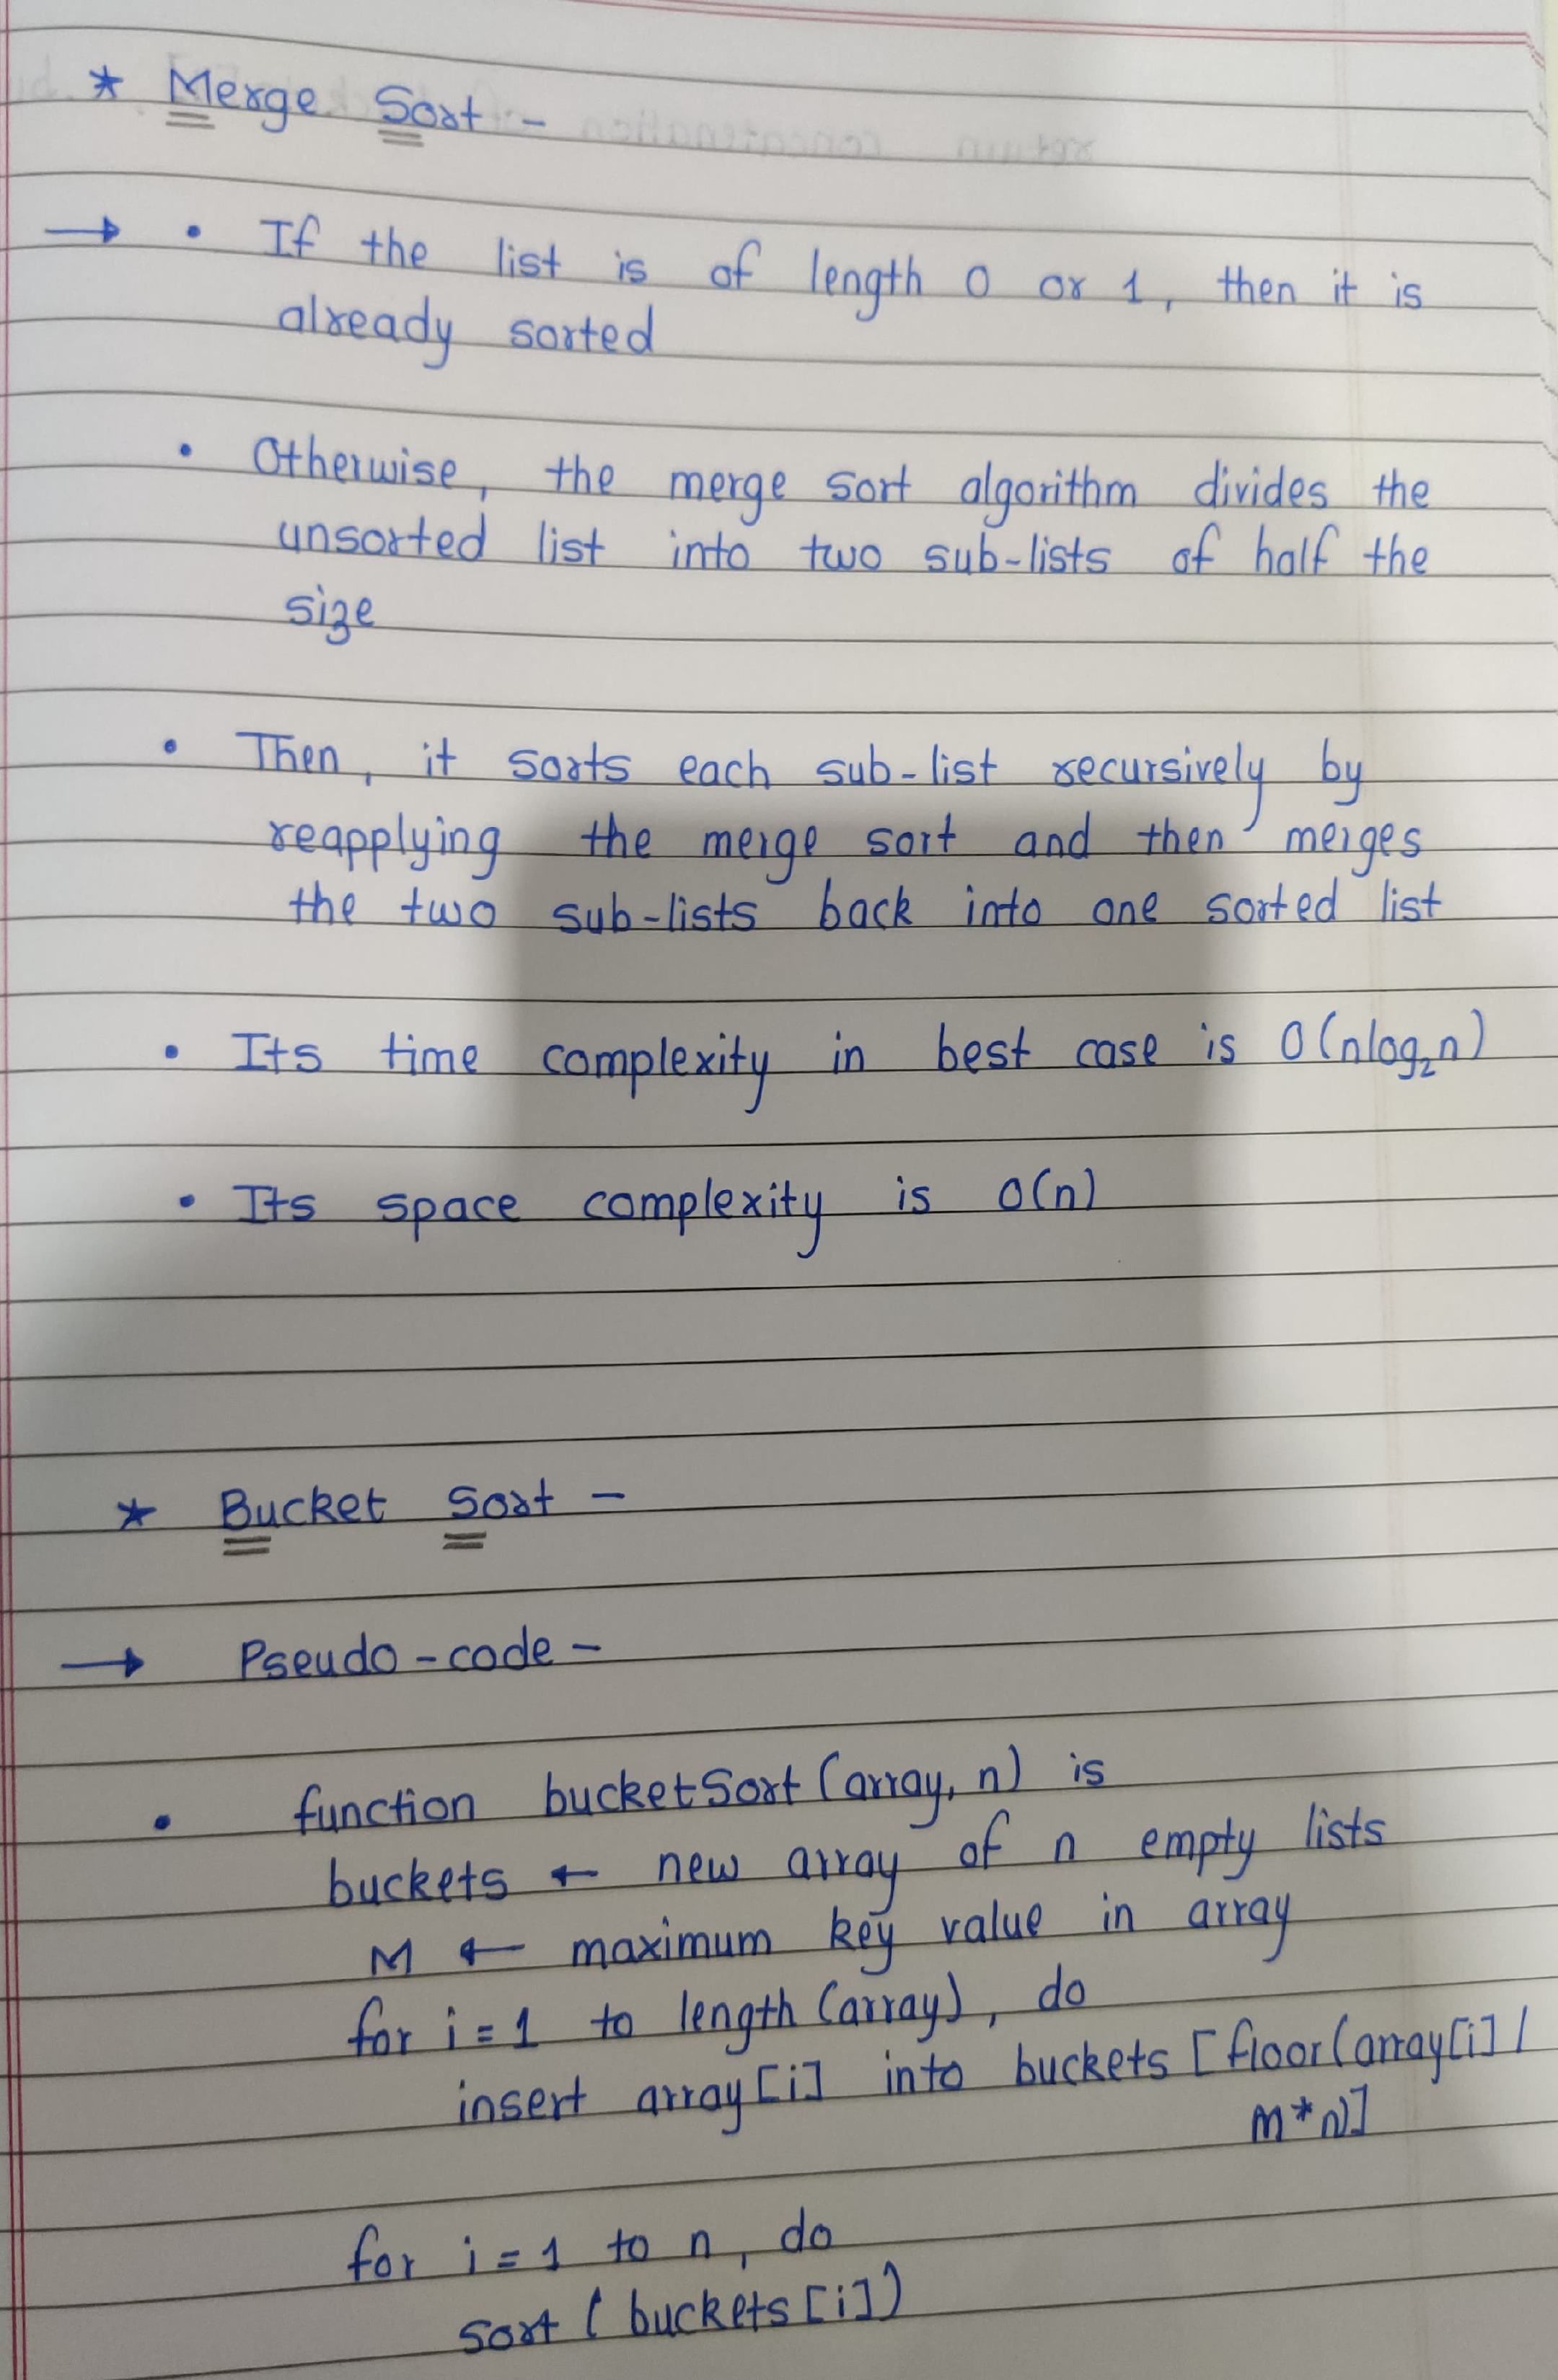 * Merge Sort -
→ • If the list is of length 0 or 1, then it is
already sorted
• Otherwise, the merge sort algorithm divides the
unsorted list into two sub-lists of half the
size
• Then, it sorts each sub-list recursively by
reapplying the merge sort and then merges
the two sub-lists back into one sorted list
• Its time complexity in best case is O(nlog₂n)
• Its space complexity is O(n)
* Bucket Sort -
→ Pseudo-code -
• function bucketSort(array, n) is
buckets ← new array of n empty lists
M ← maximum key value in array
for i = 1 to length (array), do
insert array[i] into buckets [floor(array[i] /
M * n)]
for i = 1 to n, do
sort ( buckets [i])